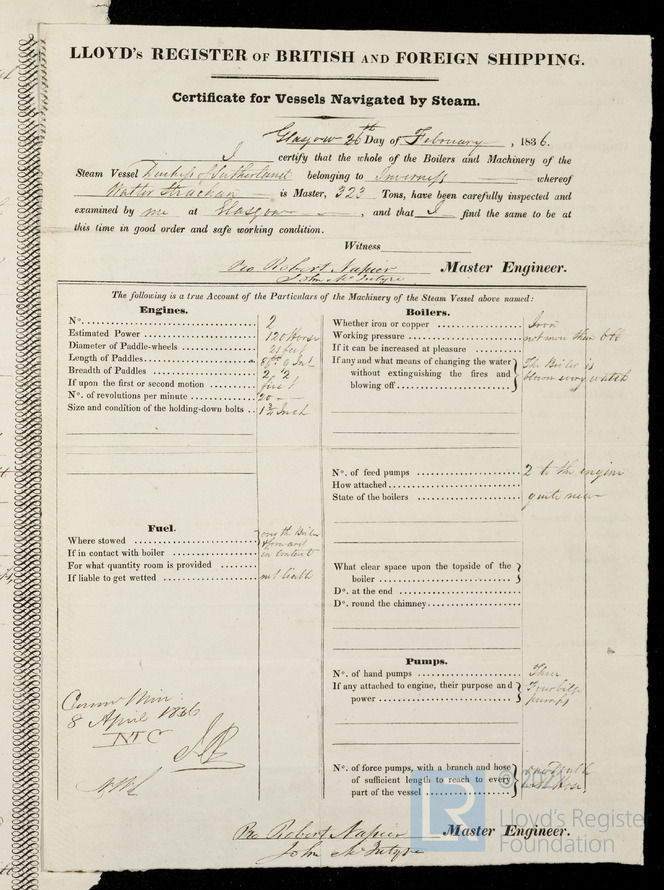 LLOYD's REGISTER OF BRITISH AND FOREIGN SHIPPING.
Certificate for Vessels Navigated by Steam.
Glasgow 26th Day of February, 1836.
I certify that the whole of the Boilers and Machinery of the
Steam Vessel Duchess of Sutherland belonging to Inverness whereof
Walter Strachan is Master, 323 Tons, have been carefully inspected and
examined by me at Glasgow, and that I find the same to be at
this time in good order and safe working condition.
Witness
Pro Robert Napier Master Engineer.
John McIntyre
The following is a true Account of the Particulars of the Machinery of the Steam Vessel above named:
Engines.
No. 2
Estimated Power 120 Horse
Diameter of Paddle-wheels 21 feet
Length of Paddles
Breadth of Paddles 2 " 2
If upon the first or second motion first
No. of revolutions per minute 20
Size and condition of the holding-down bolts 1¾ Inch
Fuel.
Where stowed Boiler
& forward
If in contact with boiler in contact
For what quantity room is provided
If liable to get wetted not liable
Comm Min:
8 April 1836
NTC
Boilers.
Whether iron or copper Iron
Working pressure not more than 6 lb
If it can be increased at pleasure
If any and what means of changing the water The Boiler is
without extinguishing the fires and blown every watch
blowing off
No. of feed pumps 2 to the engine
How attached
State of the boilers quite new
What clear space upon the topside of the
boiler
Do. at the end
Do. round the chimney
Pumps.
No. of hand pumps Three
If any attached to engine, their purpose and Four bilge
power pumps
No. of force pumps, with a branch and hose
of sufficient length to reach to every
part of the vessel
Pro Robert Napier Master Engineer.
John McIntyre
LR
Lloyd's Register
Foundation